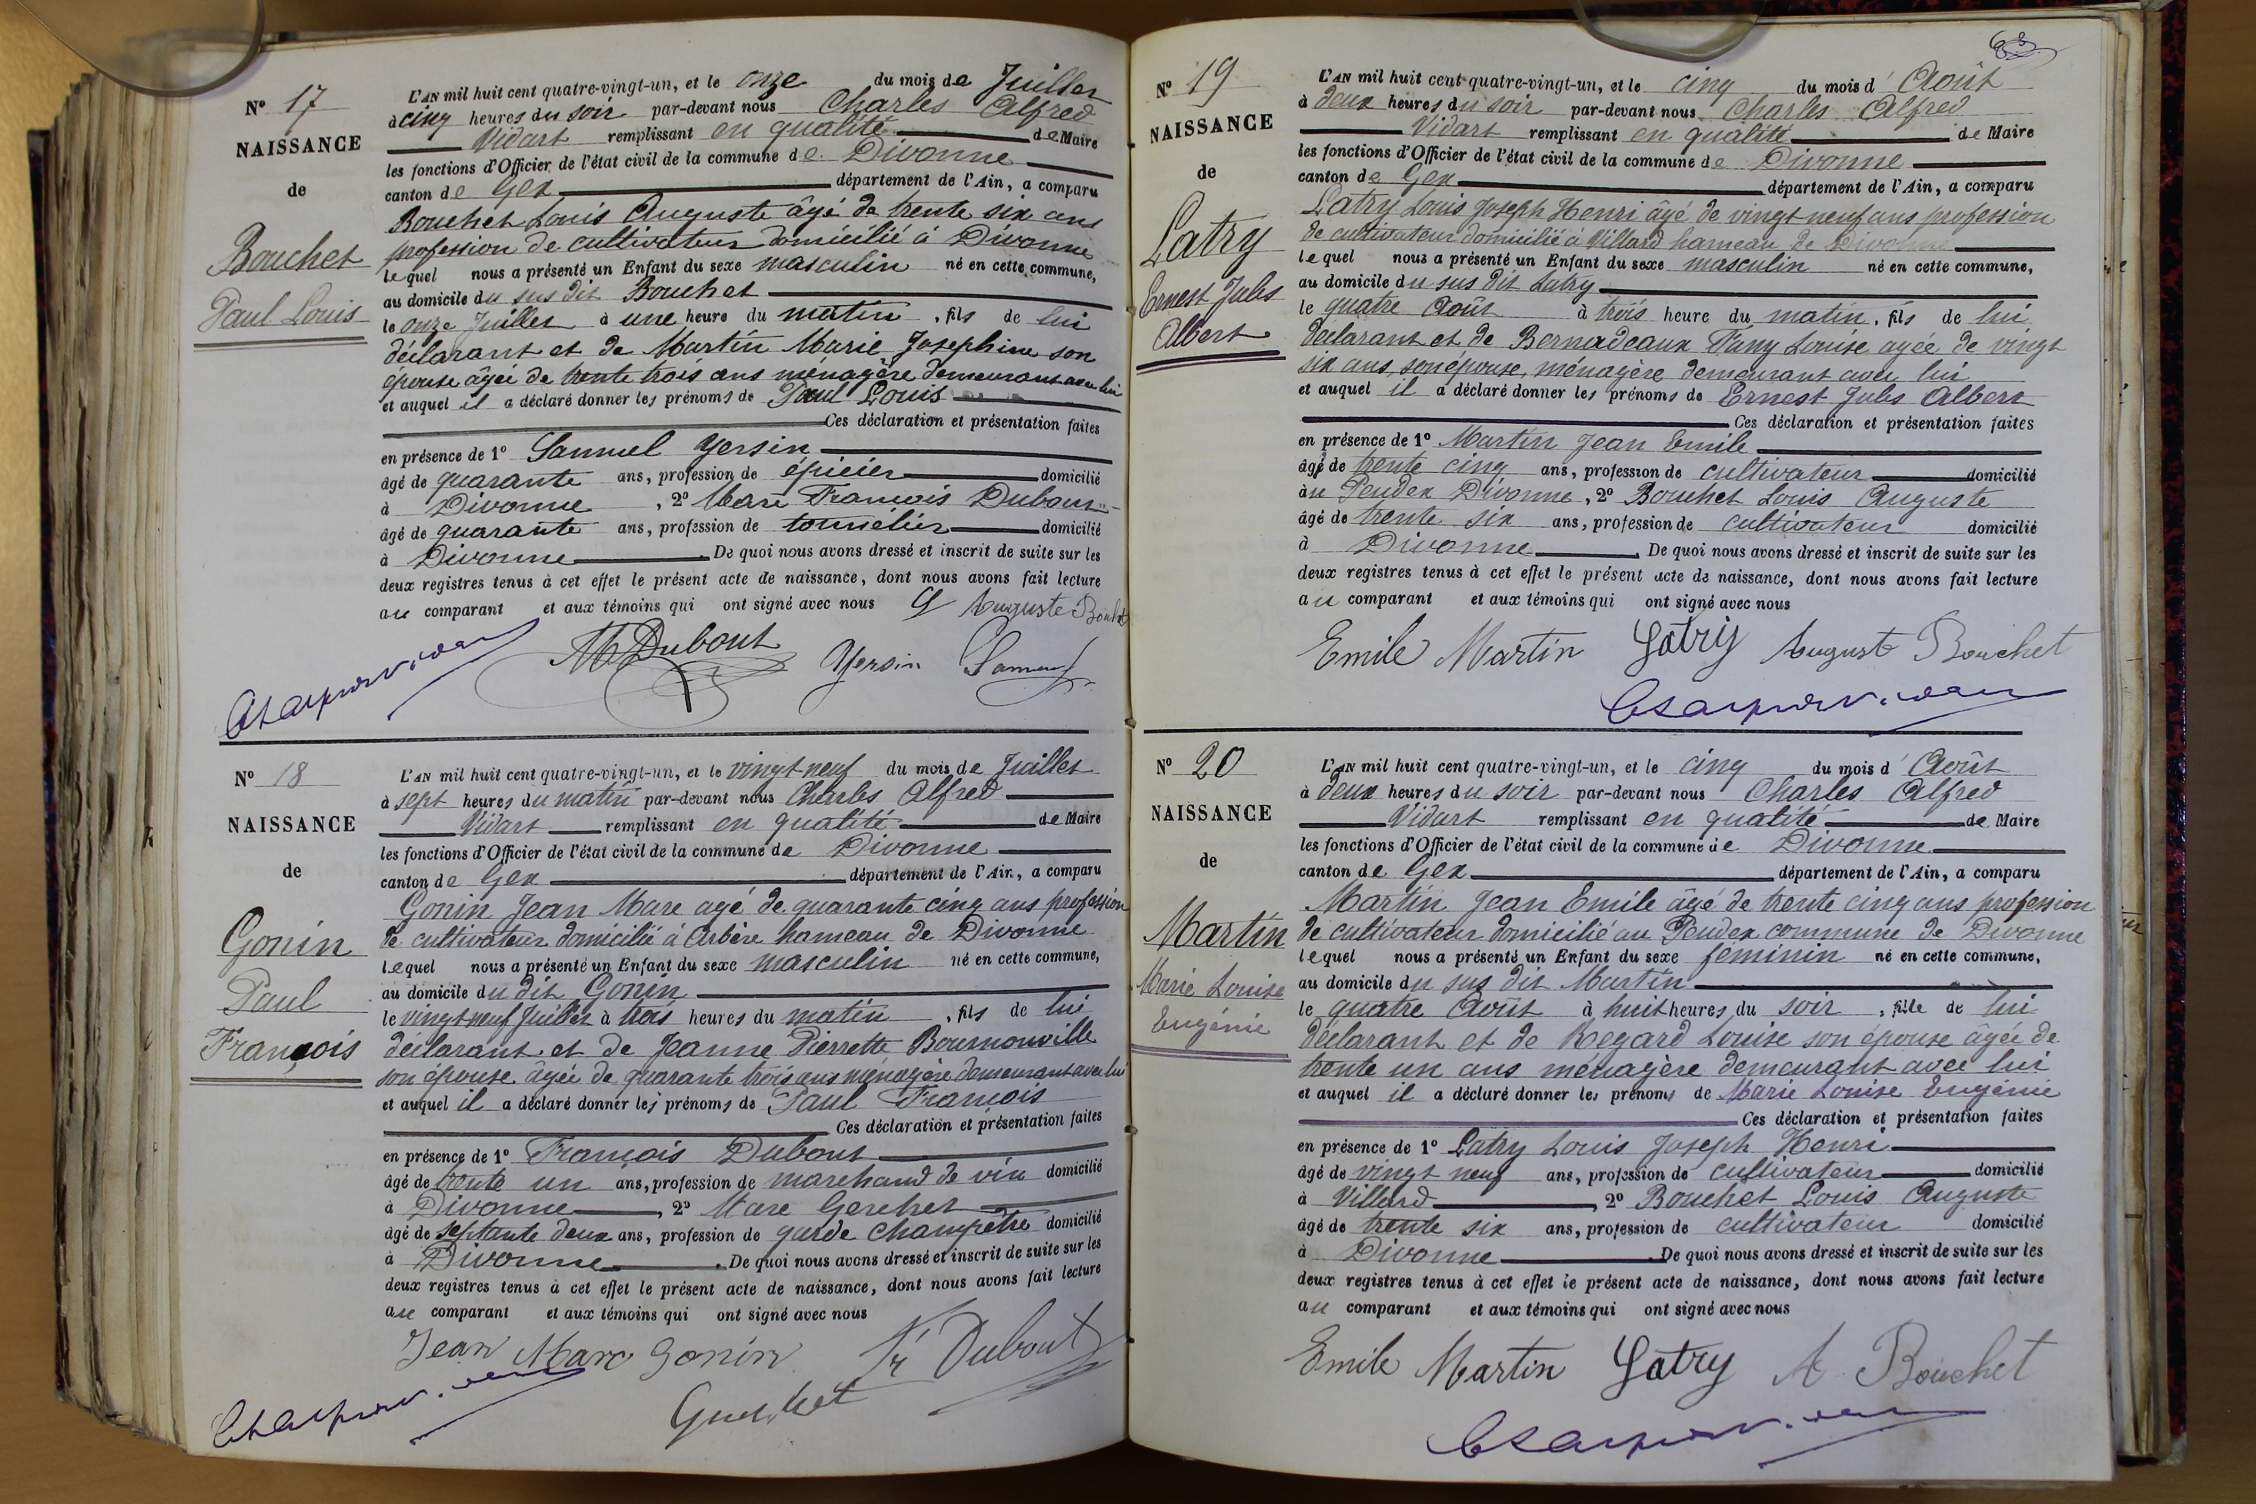 N° 17
NAISSANCE
de
Bouchet
Paul Louis
L'AN mil huit cent quatre-vingt-un, et le onze du mois de Juillet
à cinq heures du soir par-devant nous Charles Alfred
Vidart remplissant en qualité de Maire
les fonctions d'Officier de l'état civil de la commune de Divonne
canton de Gex département de l'Ain, a comparu
Bouchet Louis Auguste âgé de trente six ans
profession de cultivateur domicilié à Divonne
lequel nous a présenté un Enfant du sexe masculin né en cette commune,
au domicile du sus dit Bouchet
le onze Juillet à une heure du matin, fils de lui
déclarant et de Martin Marie Josephine son
épouse âgée de trente trois ans ménagère demeurant avec lui
et auquel il a déclaré donner les prénoms de Paul Louis
Ces déclaration et présentation faites
en présence de 1° Samuel Yersin
âgé de quarante ans, profession de épicier domicilié
à Divonne, 2° Marc François Dubout
âgé de quarante ans, profession de tonnélier domicilié
à Divonne. De quoi nous avons dressé et inscrit de suite sur les
deux registres tenus à cet effet le présent acte de naissance, dont nous avons fait lecture
au comparant et aux témoins qui ont signé avec nous
Auguste Bouchet
M Dubout Yersin Samuel
N° 18
NAISSANCE
de
Gonin
Paul
François
L'AN mil huit cent quatre-vingt-un, et le vingt-neuf du mois de Juillet
à sept heures du matin par-devant nous Charles Alfred
Vidart remplissant en qualité de Maire
les fonctions d'Officier de l'état civil de la commune de Divonne
canton de Gex département de l'Ain, a comparu
Gonin Jean Marc agé de quarante cinq ans profession
de cultivateur domicilié à Arbère hameau de Divonne
lequel nous a présenté un Enfant du sexe masculin né en cette commune,
au domicile du dit Gonin
le vingt neuf Juillet à trois heures du matin, fils de lui
déclarant et de Jeanne Pierrette Bournonville
son épouse âgée de quarante trois ans ménagère demeurant avec lui
et auquel il a déclaré donner les prénoms de Paul François
Ces déclaration et présentation faites
en présence de 1° François Dubout
âgé de trente un ans, profession de marchand de vin domicilié
à Divonne, 2° Marc Gerchet
âgé de septante deux ans, profession de garde champêtre domicilié
à Divonne. De quoi nous avons dressé et inscrit de suite sur les
deux registres tenus à cet effet le présent acte de naissance, dont nous avons fait lecture
au comparant et aux témoins qui ont signé avec nous
Jean Marc Gonin Fs Dubout
N° 19
NAISSANCE
de
Latry
Ernest Jules
Albert
L'AN mil huit cent quatre-vingt-un, et le cinq du mois d'Août
à deux heures du soir par-devant nous Charles Alfred
Vidart remplissant en qualité de Maire
les fonctions d'Officier de l'état civil de la commune de Divonne
canton de Gex département de l'Ain, a comparu
Latry Louis Joseph Henri âgé de vingt neuf ans profession
de cultivateur domicilié à Villard hameau de Divonne
lequel nous a présenté un Enfant du sexe masculin né en cette commune,
au domicile du sus dit Latry
le quatre Août à trois heure du matin, fils de lui
déclarant et de Bernadeaux Fany Louise agée de vingt
six ans, son épouse, ménagère demeurant avec lui
et auquel il a déclaré donner les prénoms de Ernest Jules Albert
Ces déclaration et présentation faites
en présence de 1° Martin Jean Emile
âgé de trente cinq ans, profession de cultivateur domicilié
au Peudex Divonne, 2° Bouchet Louis Auguste
âgé de trente six ans, profession de cultivateur domicilié
à Divonne. De quoi nous avons dressé et inscrit de suite sur les
deux registres tenus à cet effet le présent acte de naissance, dont nous avons fait lecture
au comparant et aux témoins qui ont signé avec nous
Emile Martin Latry Auguste Bouchet
N° 20
NAISSANCE
de
Martin
Marie Louise
Eugénie
L'AN mil huit cent quatre-vingt-un, et le cinq du mois d'Août
à deux heures du soir par-devant nous Charles Alfred
Vidart remplissant en qualité de Maire
les fonctions d'Officier de l'état civil de la commune de Divonne
canton de Gex département de l'Ain, a comparu
Martin Jean Emile âgé de trente cinq ans profession
de cultivateur domicilié au Peudex commune de Divonne
lequel nous a présenté un Enfant du sexe féminin né en cette commune,
au domicile du sus dit Martin
le quatre Août à huit heures du soir, fille de lui
déclarant et de Regard Louise son épouse âgée de
trente un ans ménagère demeurant avec lui
et auquel il a déclaré donner les prénoms de Marie Louise Eugénie
Ces déclaration et présentation faites
en présence de 1° Latry Louis Joseph Henri
âgé de vingt neuf ans, profession de cultivateur domicilié
à Villard, 2° Bouchet Louis Auguste
âgé de trente six ans, profession de cultivateur domicilié
à Divonne. De quoi nous avons dressé et inscrit de suite sur les
deux registres tenus à cet effet le présent acte de naissance, dont nous avons fait lecture
au comparant et aux témoins qui ont signé avec nous
Emile Martin Latry A Bouchet